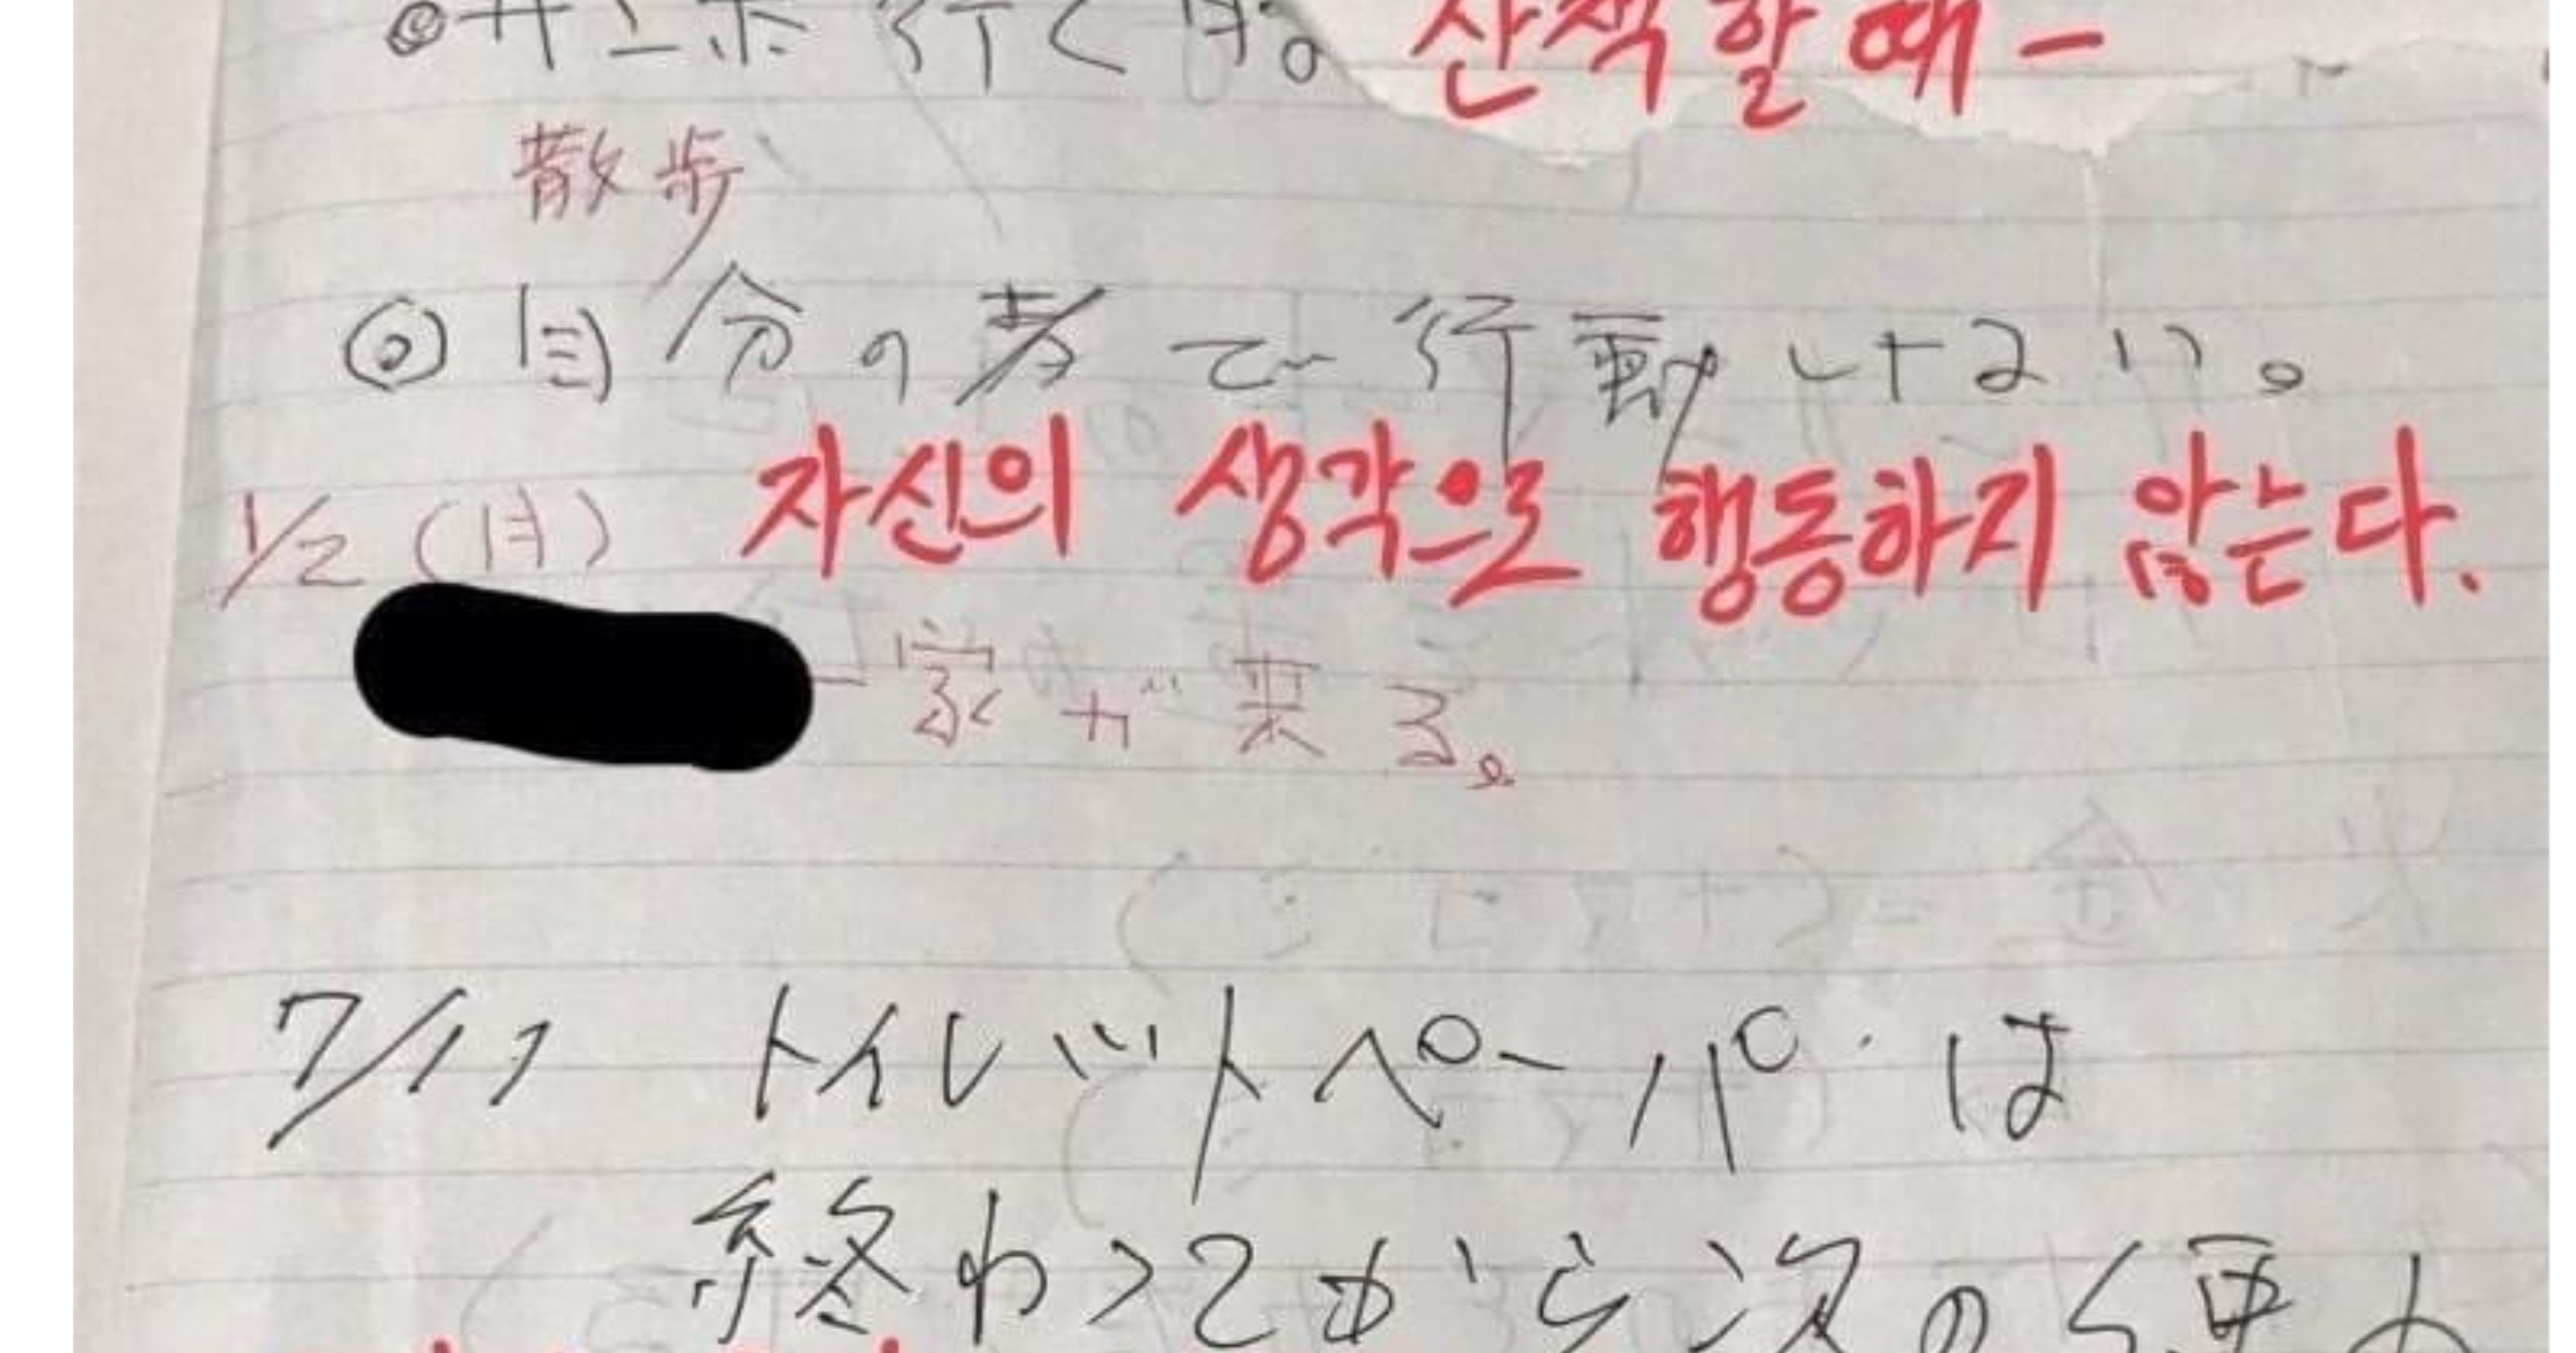 ◎サンポ行く時。 산책할 때ー
散歩
◎自分の考で行動しない。
1/2 (月) 자신의 생각으로 행동하지 않는다.
一家が来る。
7/11 トイレットペーパーは
終わってから次の使